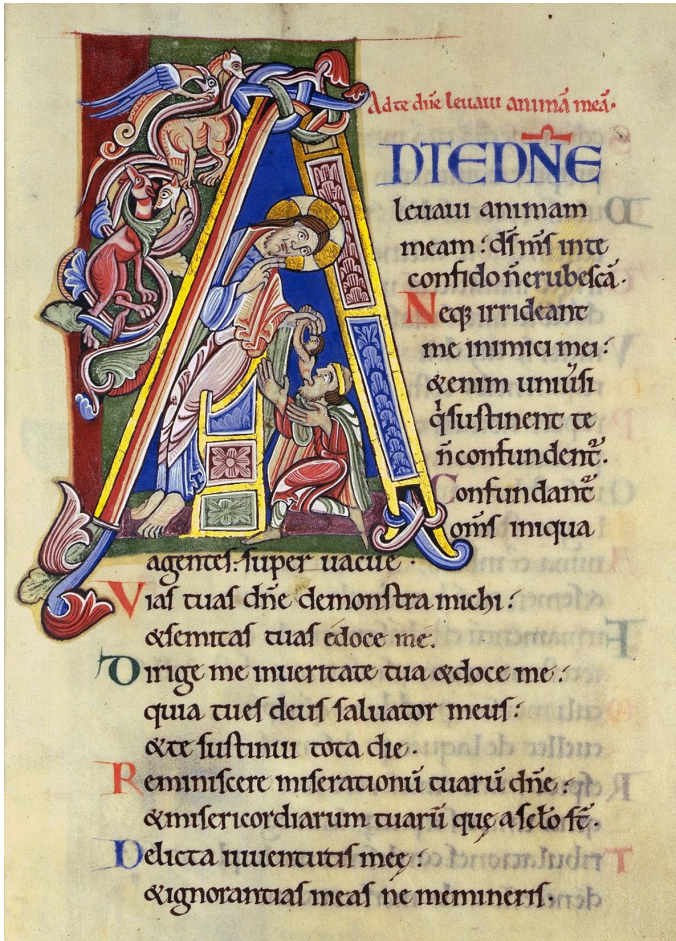 Ad te dñe leuaui animã meã.
AD TE DÑE
leuaui animam
meam: dſ mſ in te
confido ñ erubeſcã.
Neqȝ irrideant
me inimici mei:
&enim uniũſi
q̇ ſuſtinent te
ñ confundent᷑.
Confundant᷑
om̄ſ iniqua
agentes: ſuper uacue.
Viaſ tuaſ dñe demonſtra michi:
&ſemitaſ tuaſ edoce me.
Dirige me in ueritate tua &doce me:
quia tu eſ deuſ ſaluator meuſ:
&te ſuſtinui tota die.
Reminiſcere miſerationũ tuarũ dñe:
&miſericordiarum tuarũ quę a ſcło ſt̄.
Delicta iuuentutiſ meę:
&ignorantiaſ meaſ ne memineriſ.